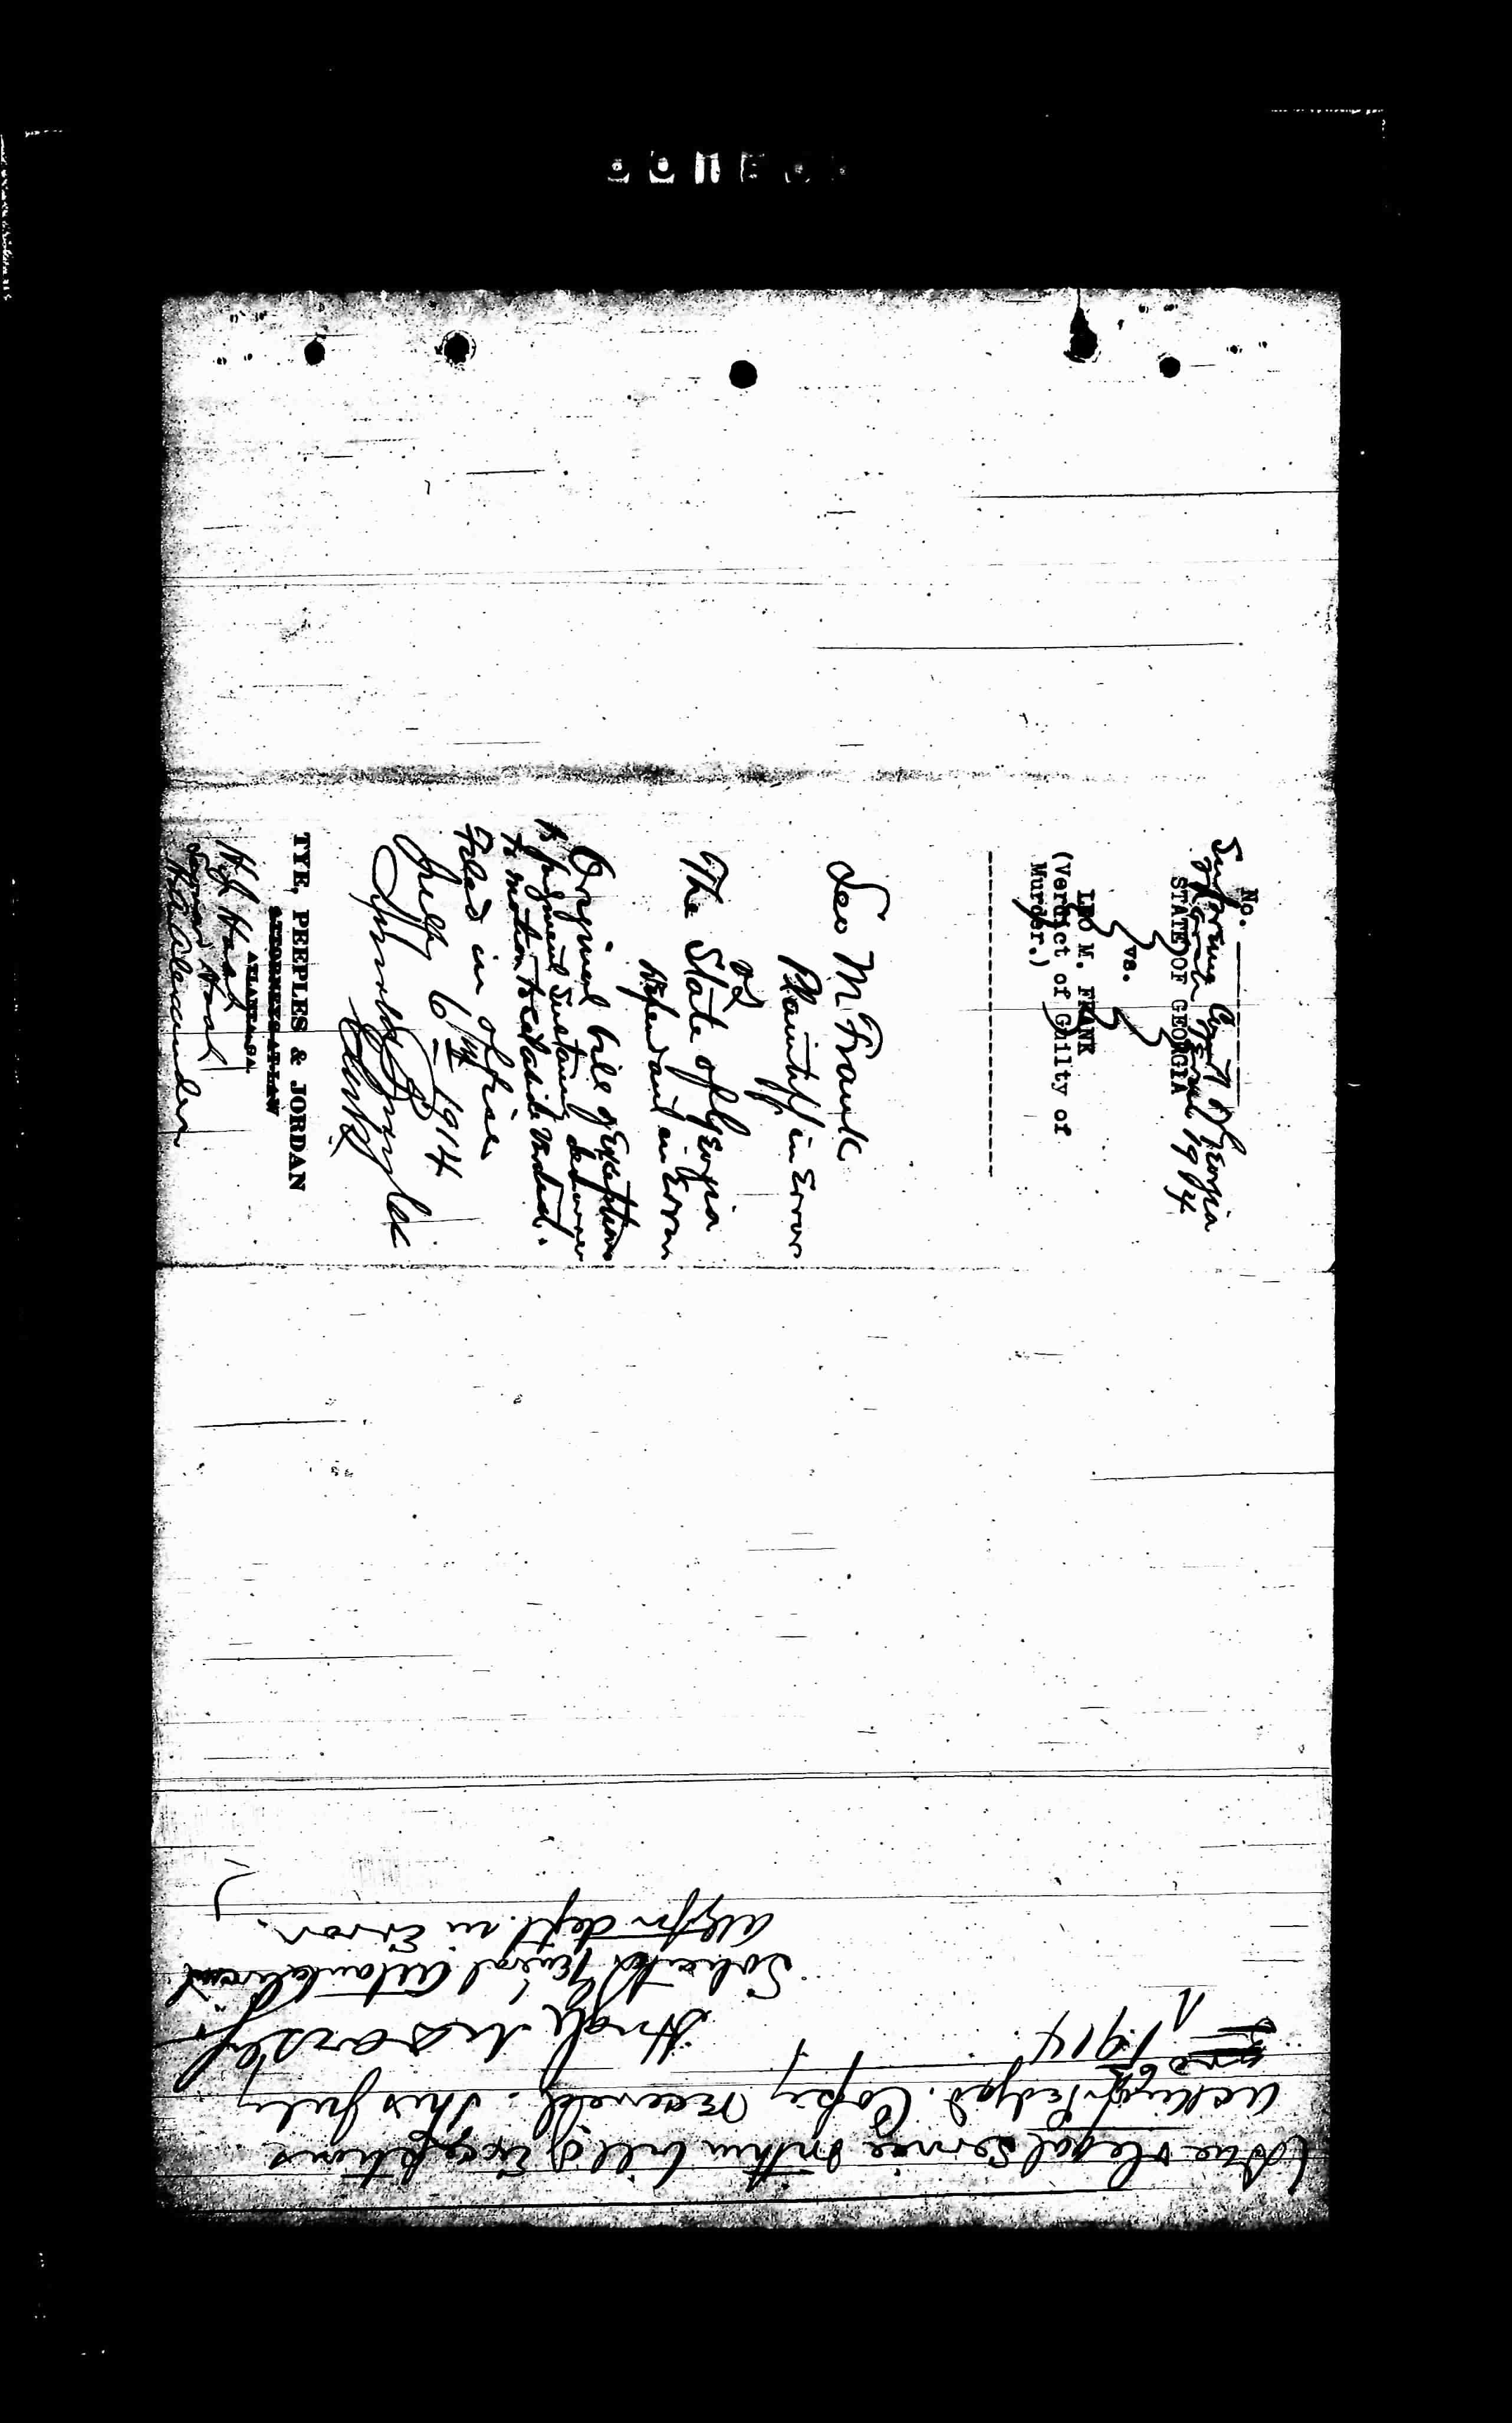 No.
Supreme Court of Georgia
1914
STATE OF GEORGIA
vs.
LEO M. FRANK
(Verdict of Guilty of
Murder.)
Leo M Frank
Plaintiff in Error
vs
The State of Georgia
Defendant in Error
Original bill of Exceptions
to judgment sustaining demurrer
to motion to set aside Verdict.
Filed in office
July 6th 1914
Clerk
TYE, PEEPLES & JORDAN
ATTORNEYS AT LAW
ATLANTA, GA.
H J Haas
Leonard Haas
H A Alexander
(Due & legal service of within bill of Exceptions
acknowledged. Copy received. This July
6th 1914
Hugh M Dorsey
Solicitor General Atlanta Circuit
Atty for deft. in Error.